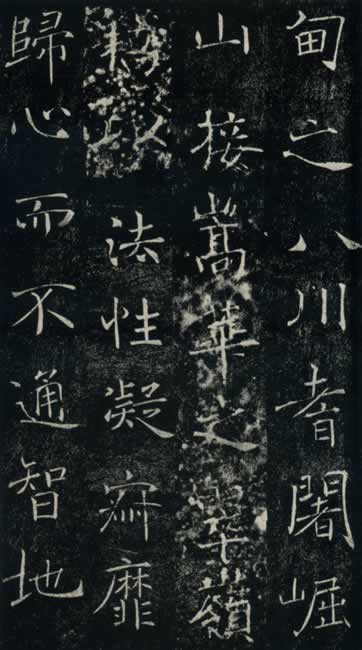 甸之八川耆闍崛
山接嵩華之翠嶺
以法性凝寂靡
歸心而不通智地